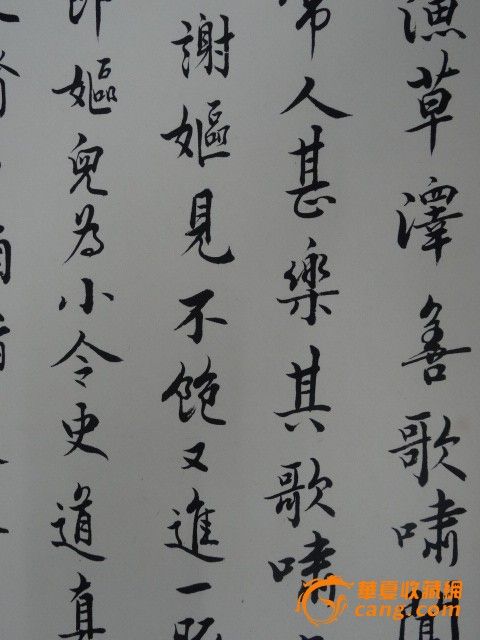 漁草澤善歌嘯聞
常人甚樂其歌嘯
謝嫗見不飽又進一
嫗兒為小令史道真
華夏收藏網
cang.com